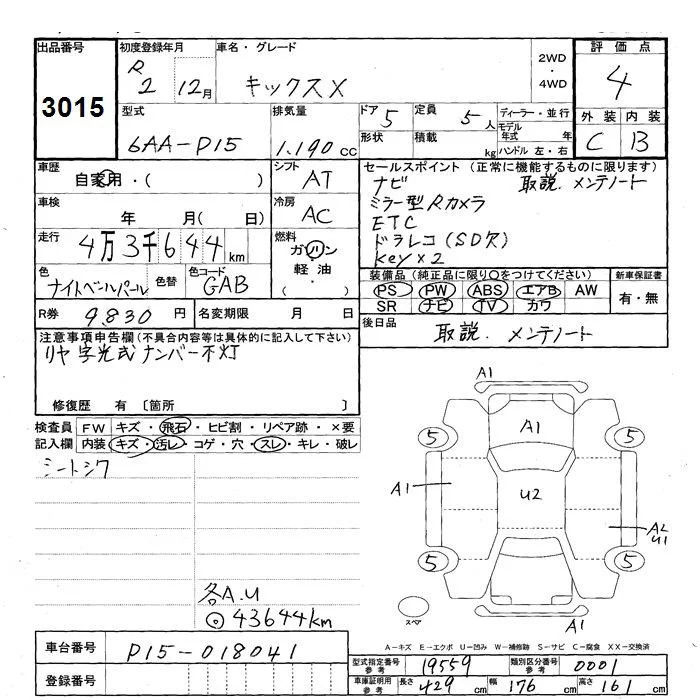 出品番号
3015
初度登録年月
R2 12月
車名・グレード
キックス X
2WD
・
4WD
評価点
4
型式
6AA-P15
排気量
1.190 CC
ドア 5
定員 5人
形状
積載 kg
ディーラー・並行
モデル年式 年
ハンドル 左・右
外装 内装
C B
車歴
自家用・( )
シフト
AT
車検
年 月( 日)
冷房
AC
走行
4万3千644km
燃料
ガソリン
軽油
( )
色
ナイトベールパール
色替
色コード
GAB
R券 9,830 円
名変期限 月 日
セールスポイント (正常に機能するものに限ります)
ナビ 取説. メンテノート
ミラー型Rカメラ
ETC
ドラレコ(SD欠)
Key×2
装備品(純正品に限り○をつけてください)
PS PW ABS エアB AW
SR ナビ TV カワ
新車保証書
有・無
後日品 取説. メンテノート
注意事項申告欄(不具合内容等は具体的に記入して下さい)
リヤ 字光式 ナンバー不灯
修復歴 有 〔箇所 〕
検査員 FW キズ・飛石・ヒビ割・リペア跡・×要
記入欄 内装 キズ・汚レ・コゲ・穴・スレ・キレ・破レ
シートシワ
各A.U
◎43644km
A1
A1
5 5
A1
U2
A2
U1
5 5
スペア
A1
A-キズ E-エクボ U-凹み W-補修跡 S-サビ C-腐食 XX-交換済
車台番号 P15-018041
登録番号
型式指定番号 参考 19559
類別区分番号 参考 0001
車庫証明用 参考 長さ 429 cm 幅 176 cm 高さ 161 cm